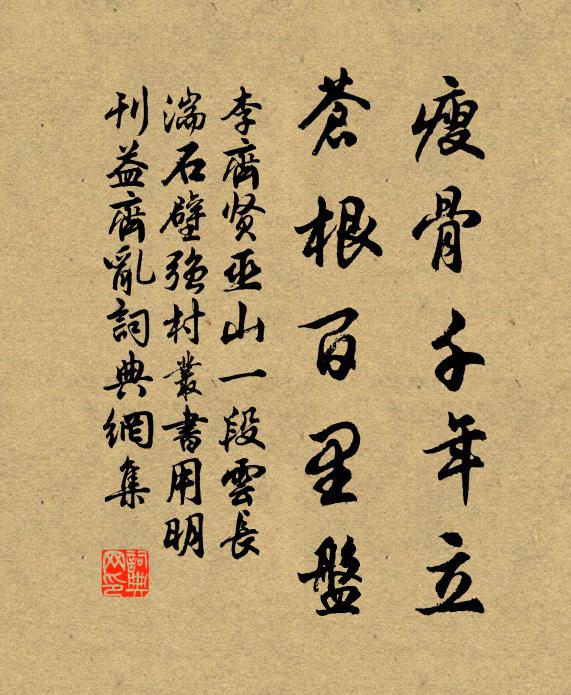 瘦骨千年立
蒼根百里盤
李齊贤巫山一段雲長
湍石壁强村叢書用明
刊益齊亂詞典網集
詞典网印